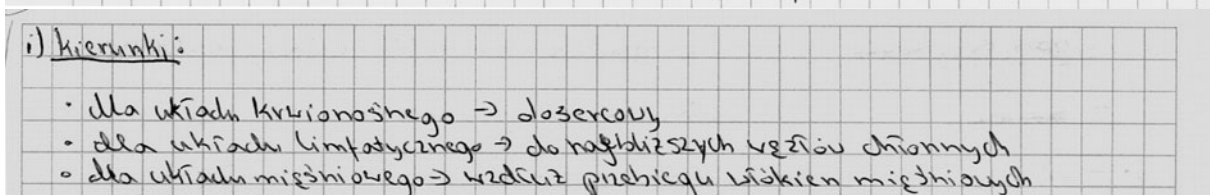 i) kierunki:
• dla układu krwionośnego → dosercowy
• dla układu limfatycznego → do najbliższych węzłów chłonnych
• dla układu mięśniowego → wzdłuż przebiegu włókien mięśniowych